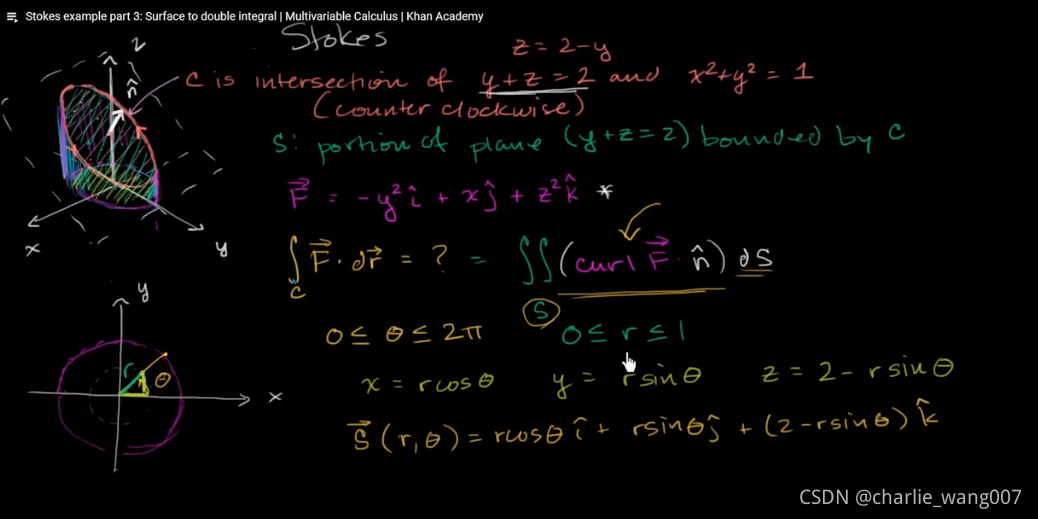 Stokes example part 3: Surface to double integral | Multivariable Calculus | Khan Academy
Stokes
z = 2-y
C is intersection of y+z=2 and x²+y²=1
(counter clockwise)
S: portion of plane (y+z=2) bounded by C
F⃗ = -y²î + xĵ + z²k̂ *
∫_C F⃗·dr⃗ = ? = ∬_S (curl F⃗ · n̂) dS
0 ≤ θ ≤ 2π 0 ≤ r ≤ 1
x = rcosθ y = rsinθ z = 2 - rsinθ
S⃗(r,θ) = rcosθ î + rsinθ ĵ + (2-rsinθ) k̂
z
n̂
x
y
y
r
θ
x
CSDN @charlie_wang007